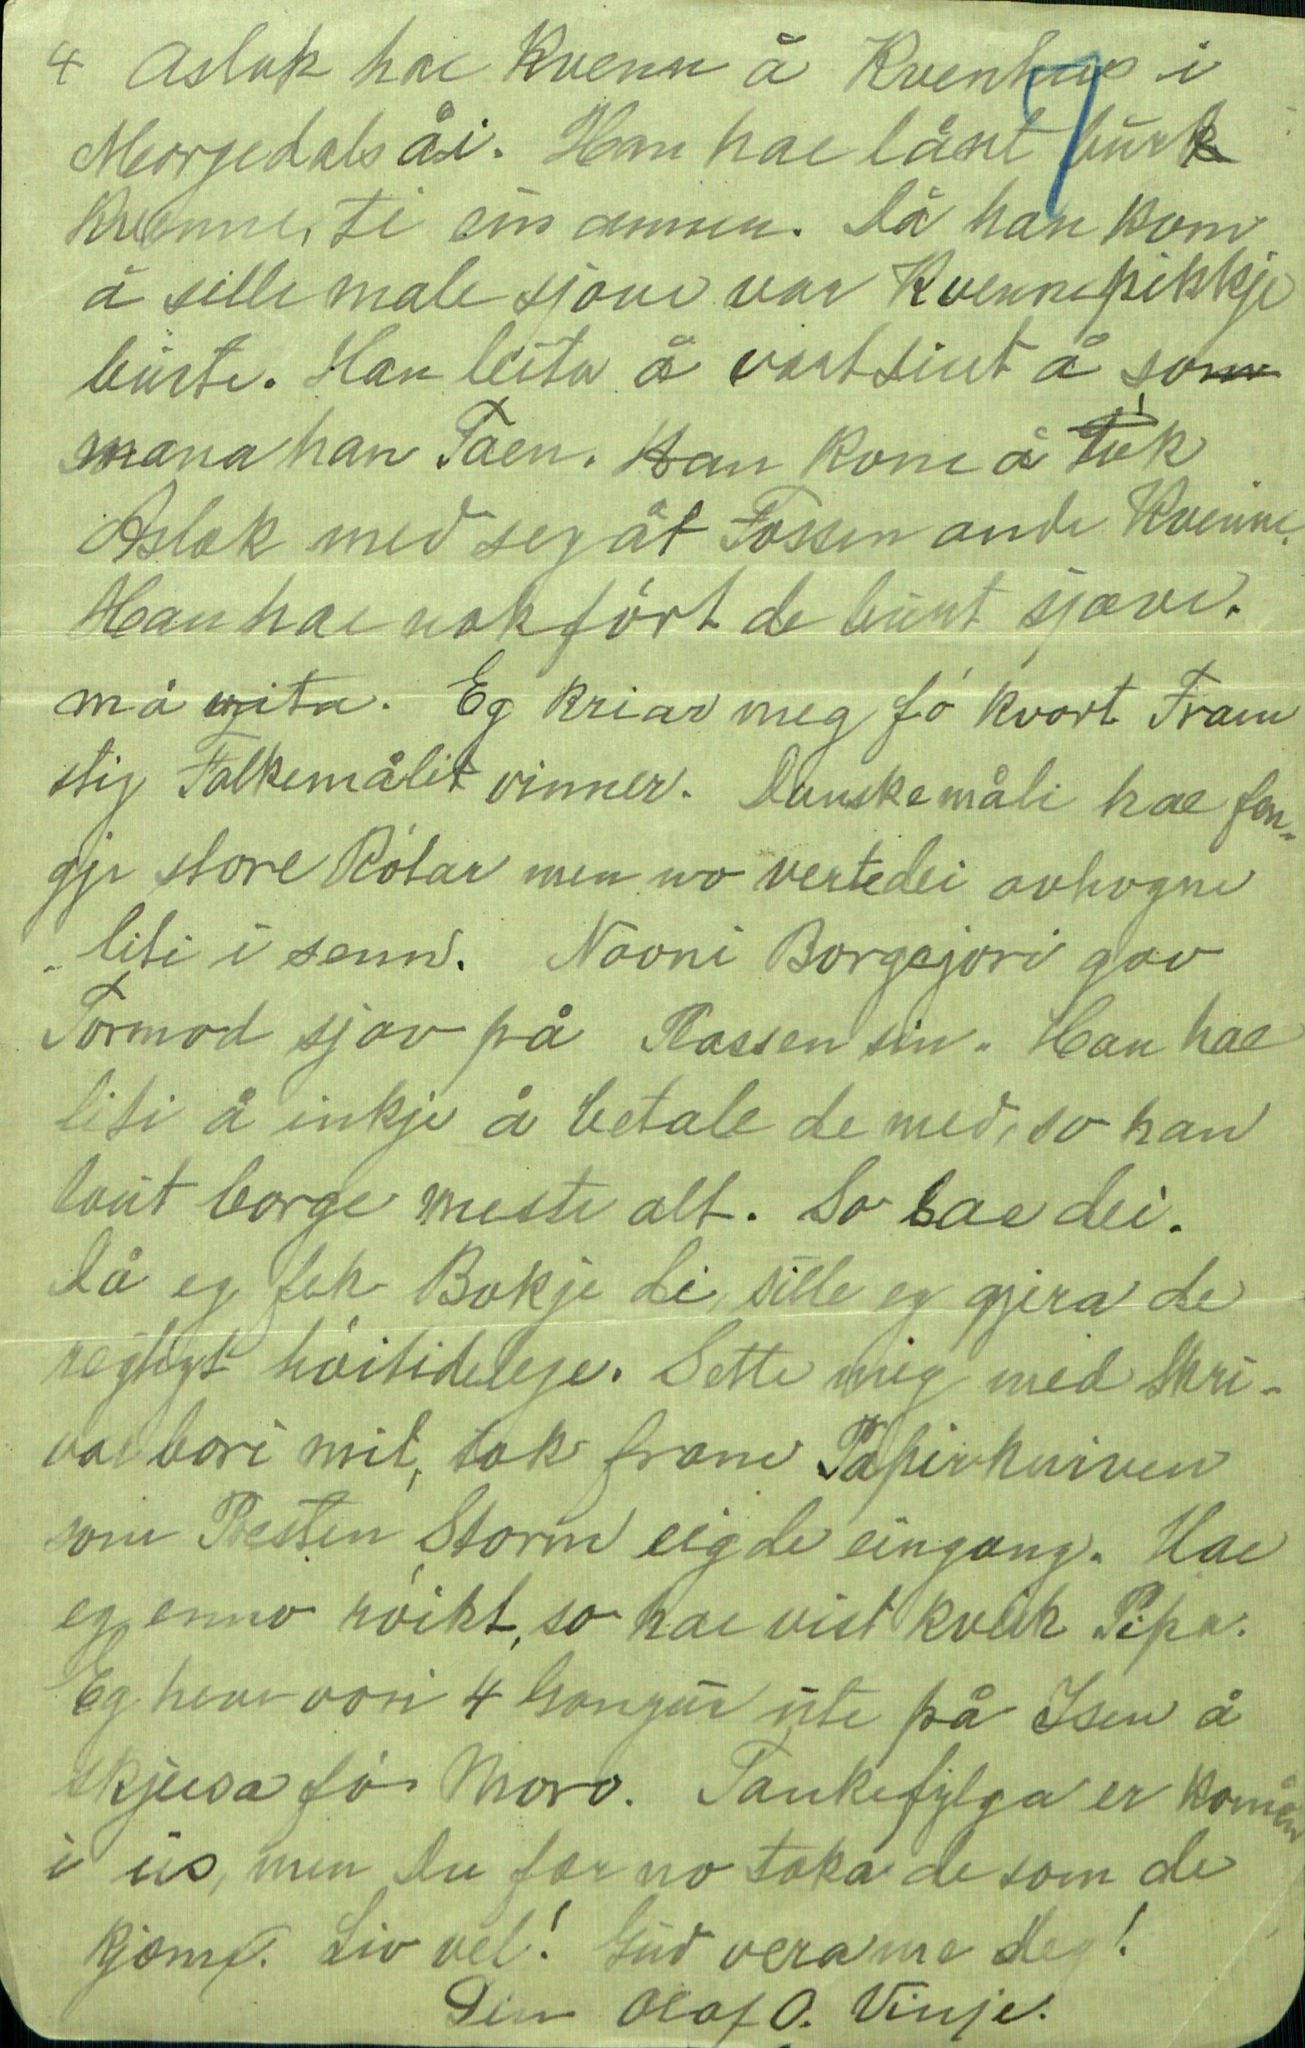 4 Aslak hae Kvenn å Kvenhus i
7
Morgedals åi. Han hae lånt burt
Kvenne, ti ein annen. Då han kom
å sille male sjøve var Kvennepikkje
burte. Han leita å vart sint å so
mana han Faen. Han kom å tók
Aslak med seg åt Fossen onde Kvenne.
Han hae nok fórt de burt sjøve.
må vita. Eg kriar meg fó kvort Fram
stig Folkemålet vinner. Danskemåli hae fen-
gje store Rótar men no verte dei avhogne
liti i senn. Navni Borgejori gav
Tormod sjøv på Plassen sin. Han hae
liti å inkje å betale de med, so han
laut borge meste alt. So sae dei.
Då eg fek Bokje di, sille eg gjera de
regligt höitidelege. Sette meg med Skri-
vaebori mit, tok fram Papirkniven
som Presten Storm eigde eingang. Hae
eg enno röikt, so hae vist kveik Pipa.
Eg heve vori 4 Gongur ute på Isen å
skjusa fó Moro. Tankefylgja er komen
i us, men Du fær no taka de som de
kjæm. Liv vel! Gud vera me deg!
Din Olaf O. Vinje.